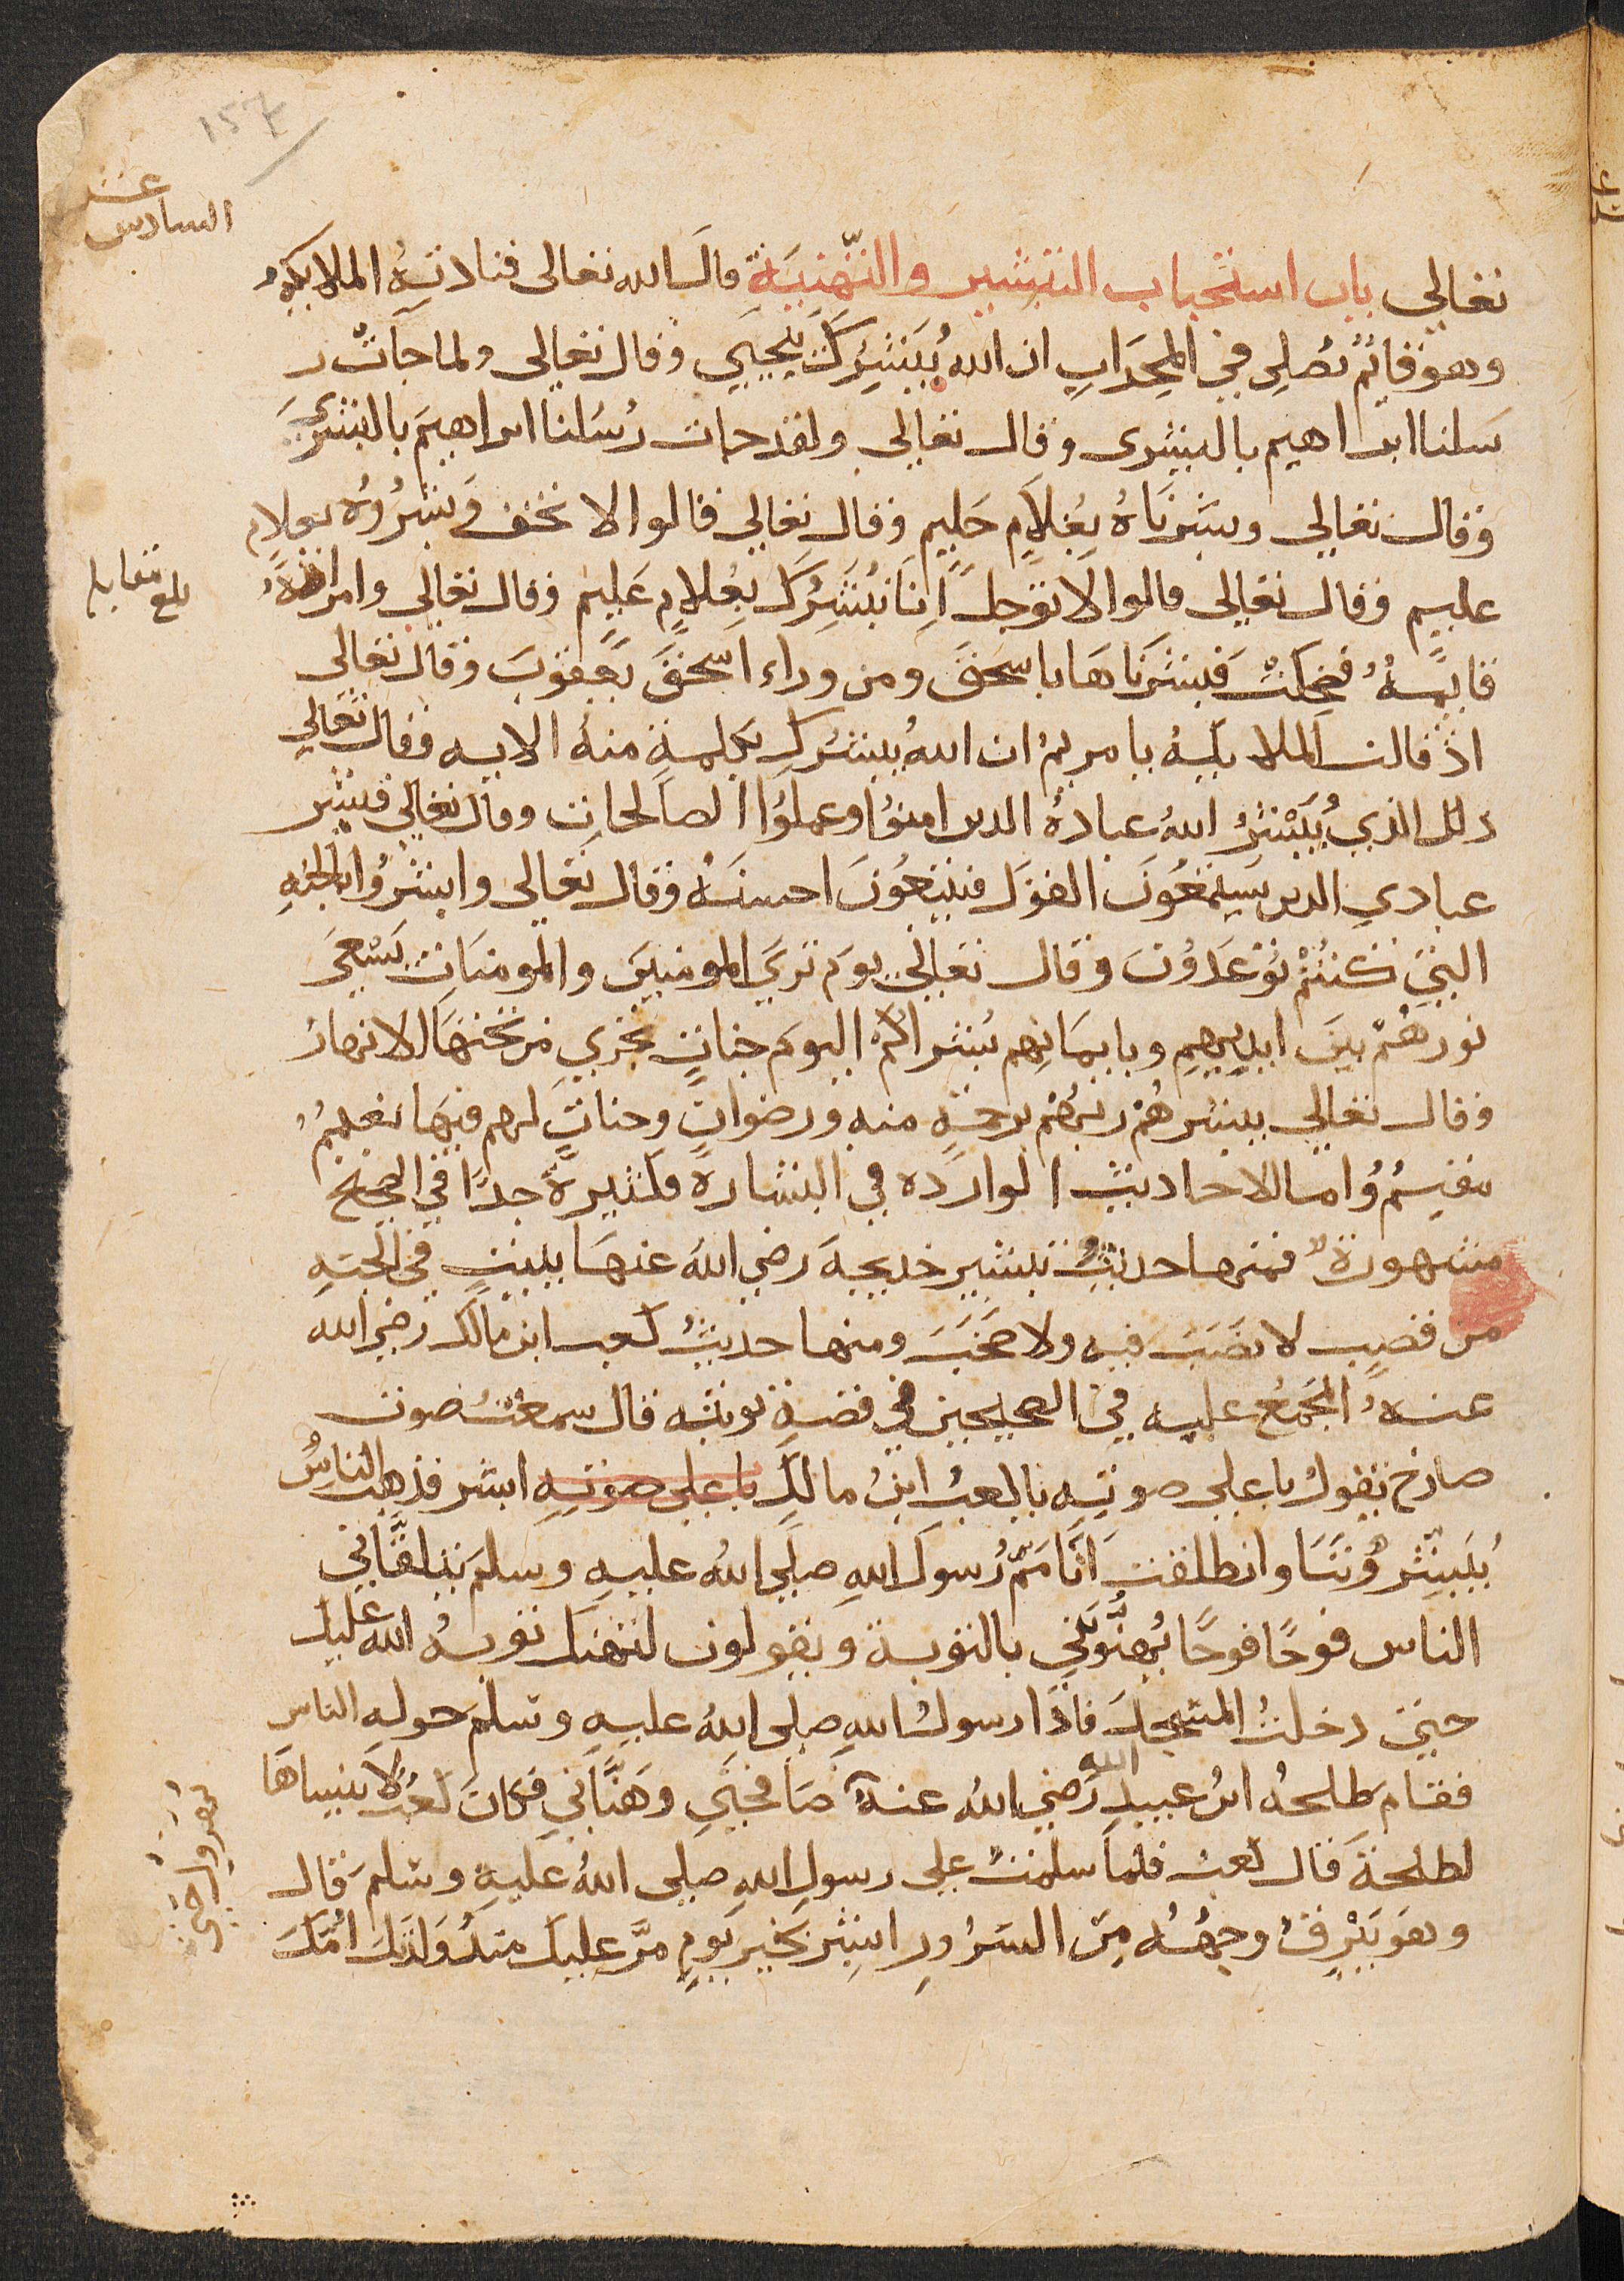 157
السادس عشر
تعالي باب استحباب التبشير والتهنية قال الله تعالى فنادته الملايكه
وهو قايم يصلي في المحراب ان الله يبشرك بيحيي وقال تعالي ولما جات ر
سلنا ابراهيم بالبشرى وقال تعالي ولقد جات رسلنا ابراهيم بالبشرى
وقال تعالي وبشرناه بغلام حليم وقال تعالي قالوا لا تخف وبشروه بغلام
عليم وقال تعالي قالوا لا توجل انا نبشرك بغلام عليم وقال تعالي وامراته
بلغ مقابله
قايمة فضحكت فبشرناها باسحق ومن وراء اسحق يعقوب وقال تعالى
اذ قالت الملايكة يا مريم ان الله يبشرك بكلمة منه الايه وقال تعالي
ذلك الذي يبشر الله عباده الذين امنوا وعملوا الصالحات وقال تعالي فبشر
عبادي الذين يستمعون القول فيتبعون احسنه وقال تعالى وابشروا بالجنه
التي كنتم توعدون وقال تعالي يوم تري المومنين والمومنات يسعى
نورهم بين ايديهم وبايمانهم بشراكم اليوم جنات تجري من تحتها الانهار
وقال تعالي يبشرهم ربهم برحمة منه ورضوان وجنات لهم فيها نعيم
مقيم واما الاحاديث الواردة في البشارة فكثيرة جدا في الصحيح
مشهورة فمنها حديث تبشير خديجة رضي الله عنها ببيت في الجنه
من قصب لا نصب فيه ولا صخب ومنها حديث كعب ابن مالك رضي الله
عنه المجمع عليه في الصحيحين في قصة توبته قال سمعت صوت
صارخ يقول باعلي صوته يا كعب ابن مالك باعلي صوته ابشر فذهب الناس
يبشروننا وانطلقت اتامم رسول الله صلي الله عليه وسلم يتلقاني
الناس فوجا فوجا يهنوني بالتوبة ويقولون لتهنك توبة الله عليك
حتي دخلت المسجد فاذا رسول الله صلى الله عليه وسلم حوله الناس
فقام طلحه ابن عبيد الله رضي الله عنه صافحني وهناني فكان كعب لا ينساها
لطلحة قال كعب فلما سلمت علي رسول الله صلى الله عليه وسلم قال
وهو يبرق وجهه من السرور ابشر بخير يوم مر عليك منذ ولدتك امك